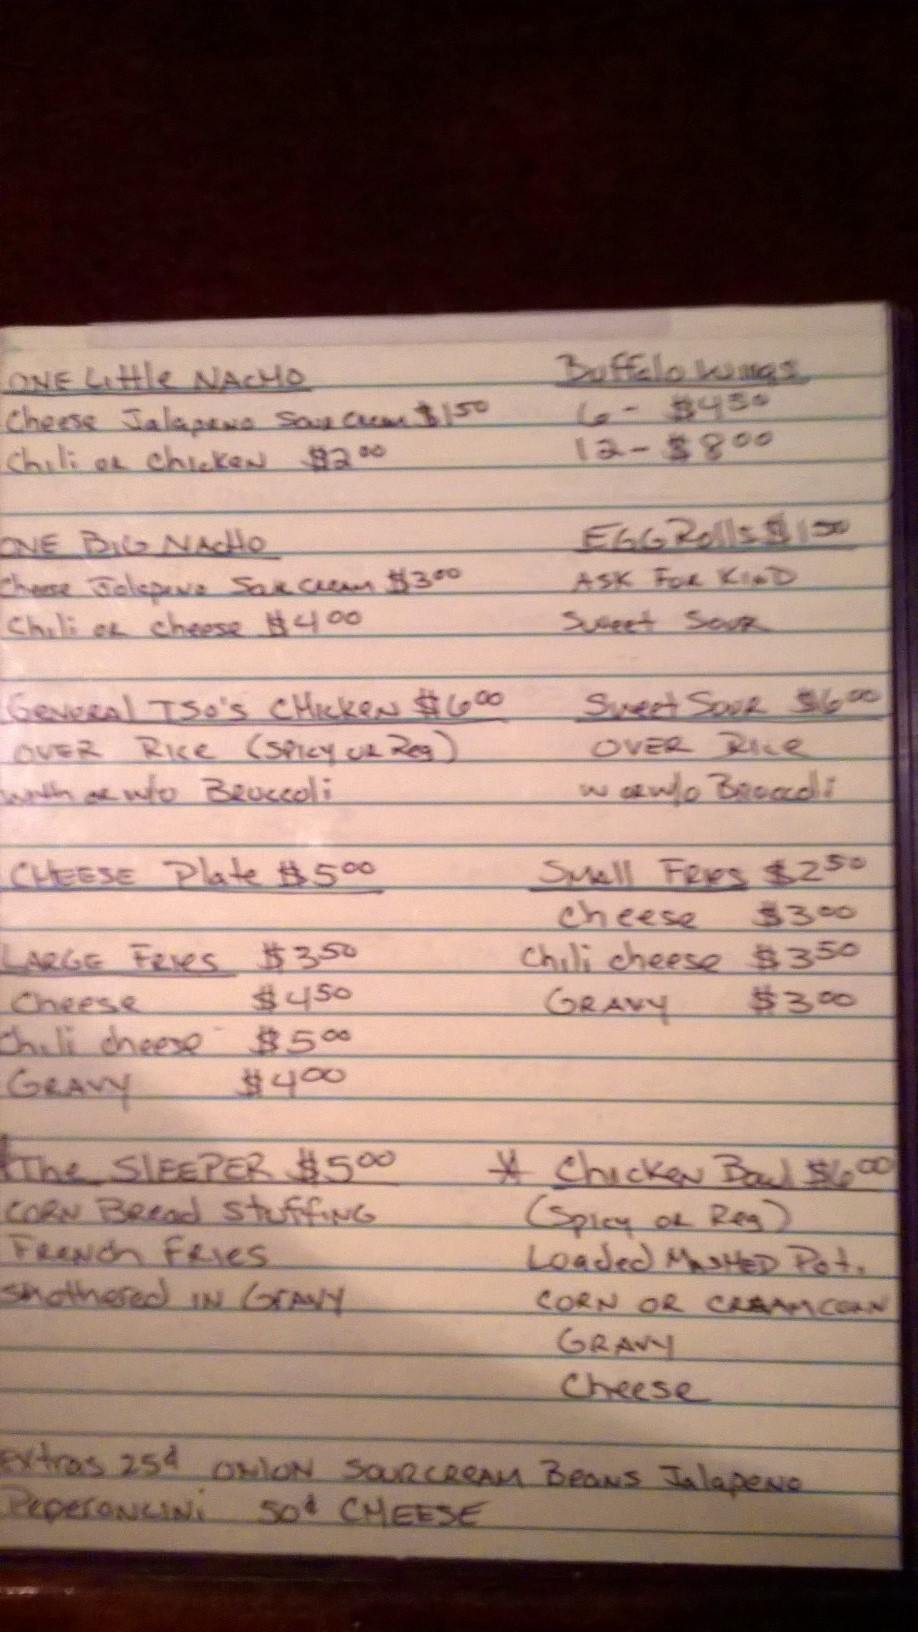 ONE Little NACHO
Cheese Jalapeno Sour Cream $1.50
Chili or Chicken $2.00
Buffalo Wings
6 - $4.50
12 - $8.00
ONE BIG NACHO
Cheese Jalapeno Sour Cream $3.00
Chili or cheese $4.00
EGG Rolls $1.50
ASK FOR KIND
Sweet Sour
General TSO'S CHicken $6.00
OVER Rice (Spicy or Reg)
with or w/o Broccoli
Sweet Sour $6.00
OVER Rice
w or w/o Broccoli
CHEESE Plate $5.00
Small Fries $2.50
Cheese $3.00
Chili cheese $3.50
GRAVY $3.00
LARGE Fries $3.50
Cheese $4.50
Chili cheese $5.00
GRAVY $4.00
* The SLEEPER $5.00
CORN Bread Stuffing
French Fries
smothered IN GRAVY
* Chicken Bowl $6.00
(Spicy or Reg)
Loaded MASHED Pot.
CORN OR CREAM CORN
GRAVY
Cheese
extras 25¢ ONION SOURCREAM BEANS Jalapeno
Peperoncini 50¢ CHEESE